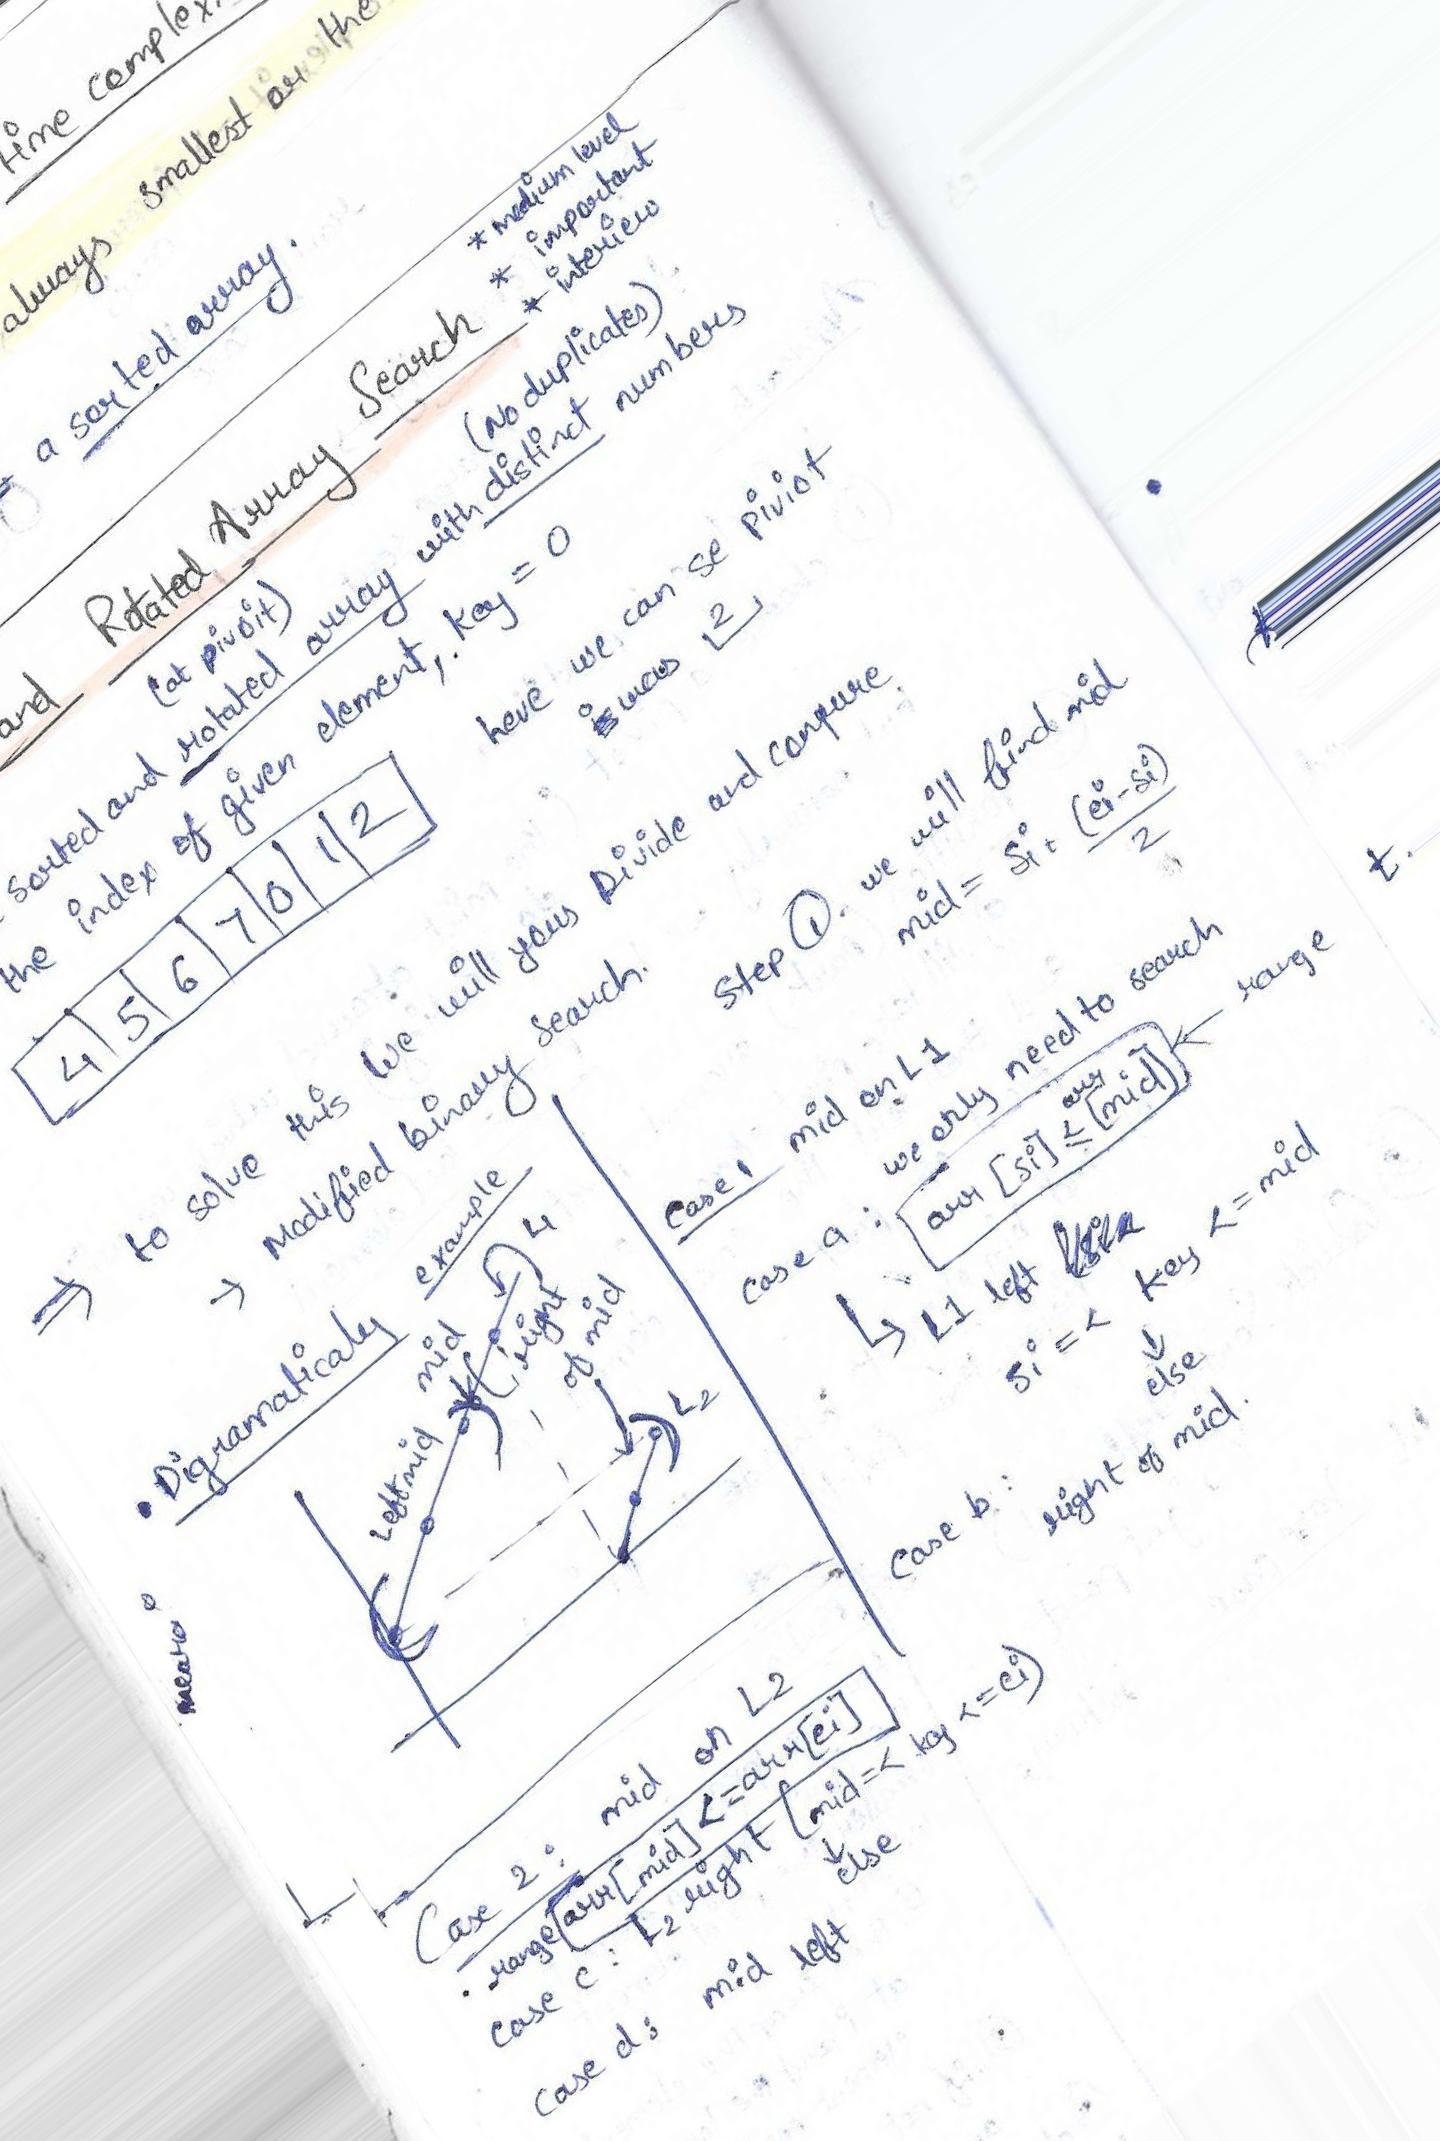 time complex
always smallest or the
a sorted array.
and Rotated Array Search
* medium level
* important
* interiew
(at pivoit)
(no duplicates)
sorted and rotated array with distinct numbers
the index of given element, key = 0
4 5 6 7 0 1 2
here we can se piviot
is was 2
⇒ to solve this we will yous Divide and conpure
→ Modified binary search.
• Digramatically example
mid
L1
left mid
right
of mid
L2
Step ①. we will find mid
mid = si + (ei-si)
2
Case 1 mid on L1
we only need to search
case a : arr [si] ≤ arr [mid] ← range
↳ L1 left
si =< key <= mid
↓
else
case b : right of mid.
Case 2 : mid on L2
• range arr[mid] <= arr[ei]
case c : L2 right (mid =< key <= ei)
↓
else
case d : mid left
t.